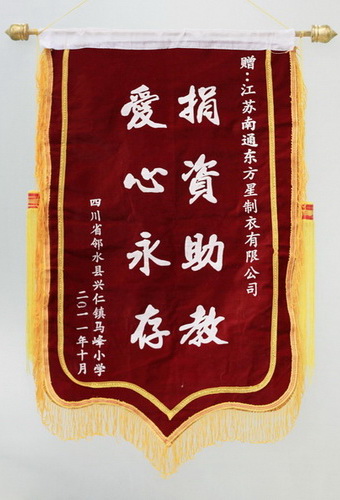 赠：江苏南通东方星制衣有限公司
捐資助教
愛心永存
四川省邻水县兴仁镇马峰小学
二〇一一年十月